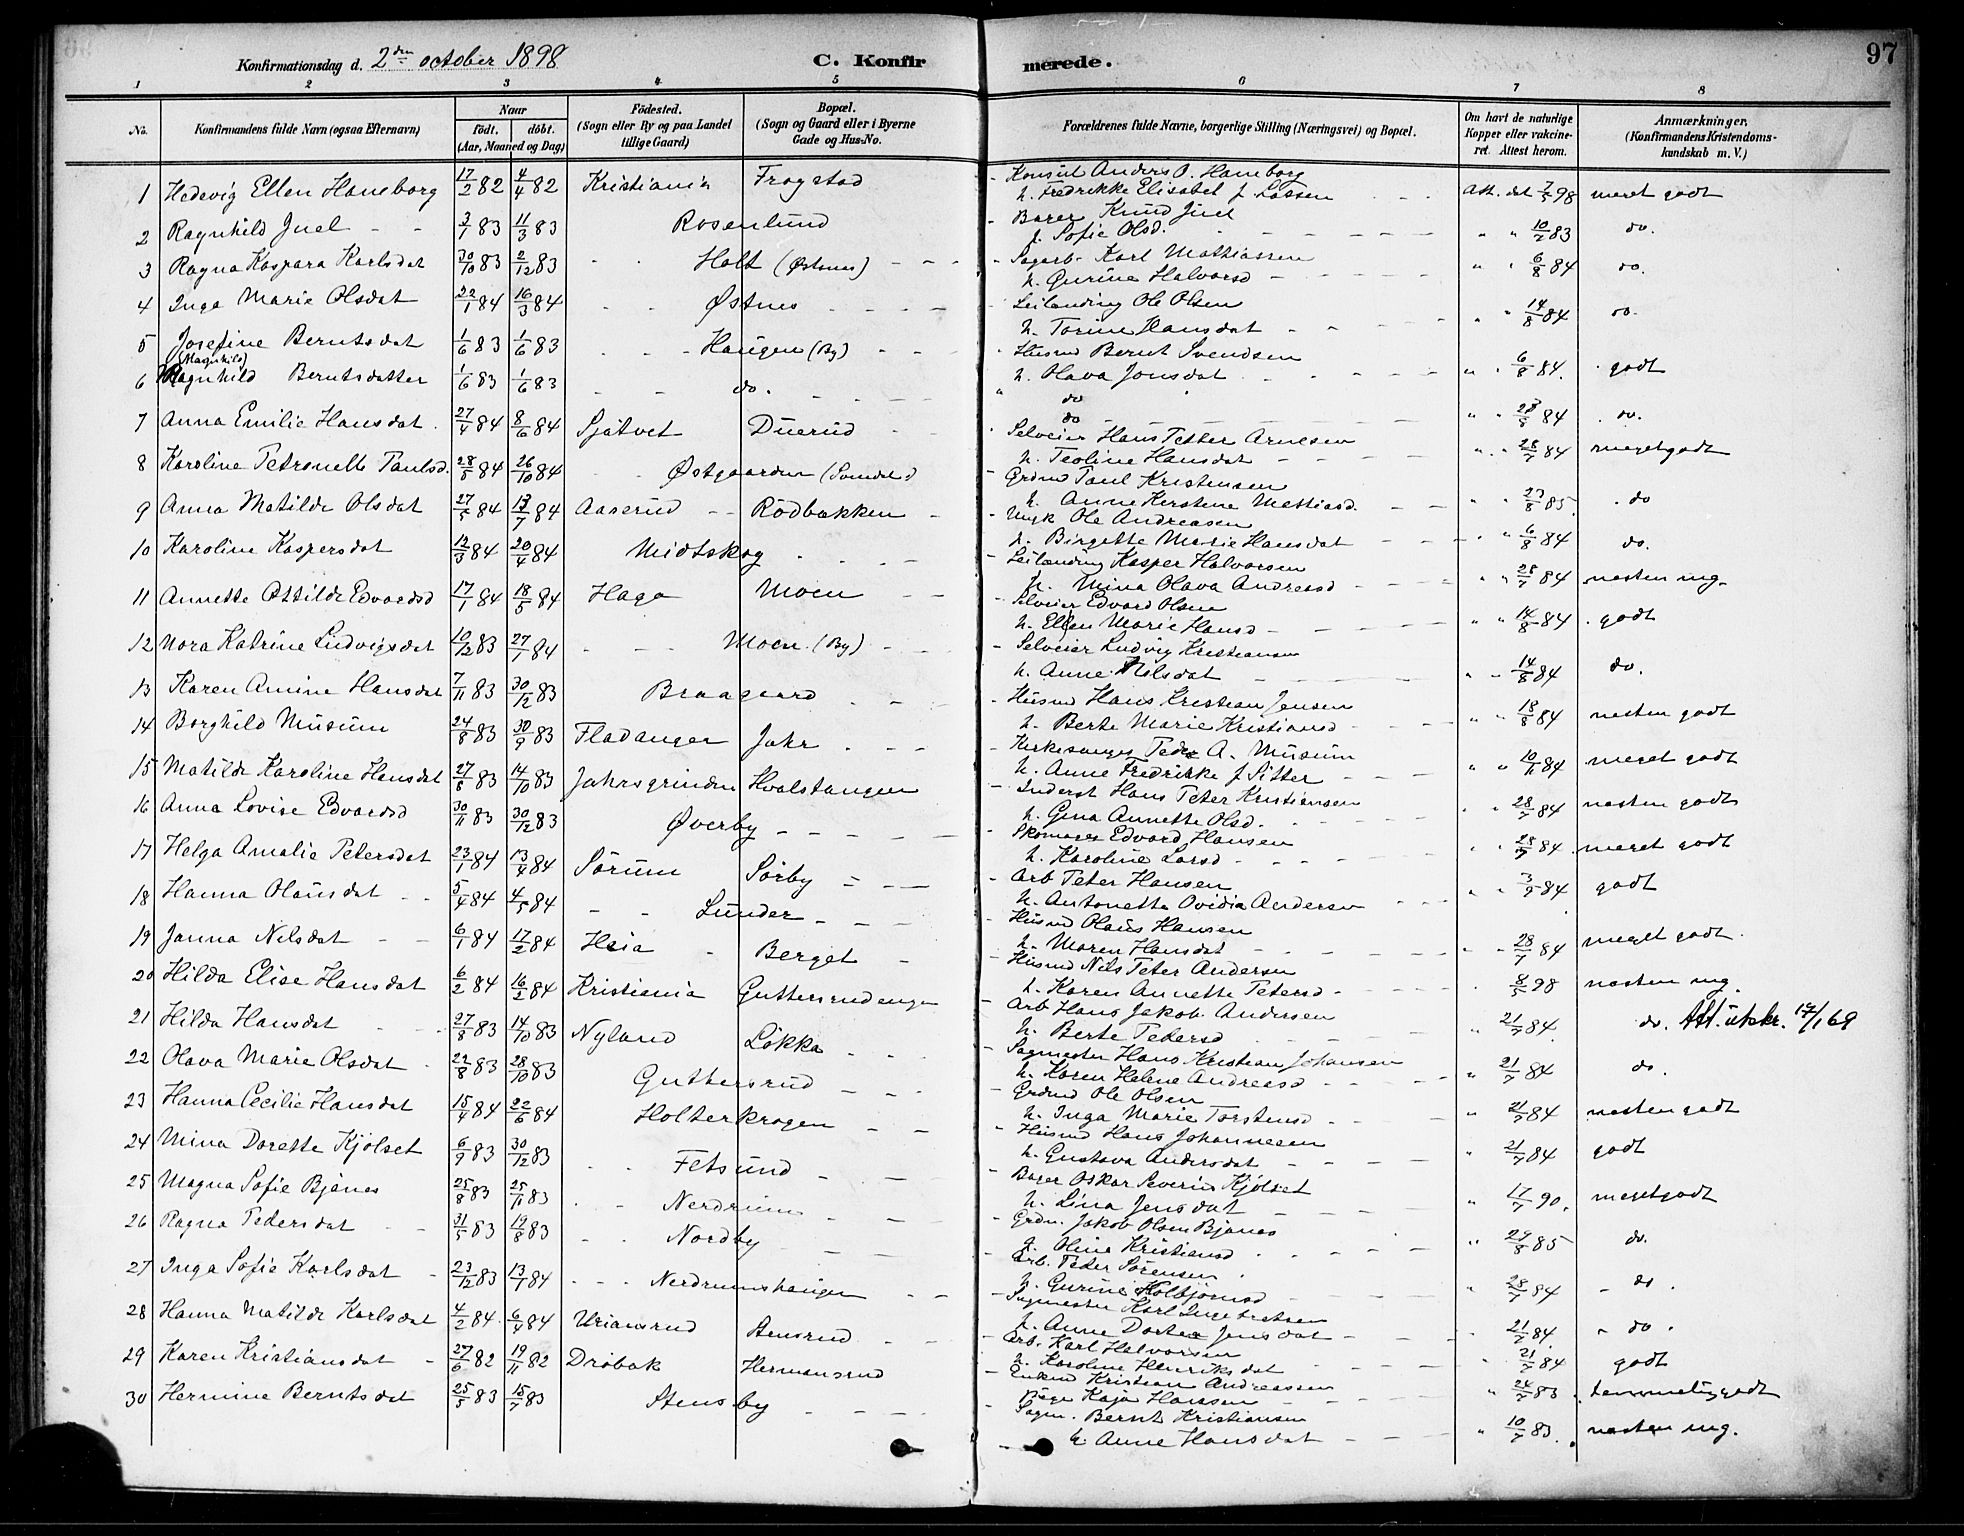 Konfirmationsdag d. 2den october 1898
C. Konfirmerede.
97
1 2 3 4 5 6 7 8
No. | Konfirmandens fulde Navn (ogsaa Efternavn) | Naar född. döbt. (Aar, Maaned og Dag) | Födested. (Sogn eller By og paa Landet tillige Gaard) | Bopæl. (Sogn og Gaard eller i Byerne Gade og Hus-No. | Forældrenes fulde Navne, borgerlige Stilling (Næringsvei) og Bopæl. | Om havt de naturlige Kopper eller vaccineret. Attest herom. | Anmærkninger. (Konfirmandens Kristendomskundskab m. V.)
1 Hedevig Ellen Haneborg 17/2 82 4/4 82 Kristiania Frogstad - Konsul Anders O. Haneborg
h. Fredrikke Elisabet f Lassen Att. dat 7/5 98 meget godt
2 Ragnhild Juel - - 3/1 83 11/3 83 Rosenlund - Bager Knud Juel
f. Sofie Olsd. " " 10/2 83 do.
3 Ragna Kaspara Karlsdat 30/10 83 2/12 83 Holt (Østnes) - Sagarb. Karl Mathiassen
h. Gurine Halvorsd " " 6/8 84 do.
4 Inga Marie Olsdat 22/1 84 16/3 84 Østnes - Leilending Ole Olsen
h. Torine Hansdat " " 14/8 84 do.
5 Josefine Berntsdat 1/6 83 1/6 83 Haugen (By) - Husmd Bernt Svendsen
h. Olava Jonsdat " " 6/8 84. godt
(Magnhild)
6 Ragnhild Berntsdatter 1/6 83 1/6 83 do. " do
do " " 28/5 84 do.
7 Anna Emilie Hansdat. 27/4 84 8/6 84 Sjatvet Duerud Selveier Hans Petter Arnesen
h. Teoline Hansdat " " 28/7 84 meget godt
8 Karoline Petronelle Paulsd. 28/5 84 26/10 84 Østgaarden - Grdmd Paul Kristensen
h. Anne Kerstene Mathiasd. " " 23/8 85. do
9 Anna Matilde Olsdat 27/5 84 13/7 84 Aaserud - - Rödbakken - - Ungk Ole Andreasen
h. Birgette Marie Hansdat " 6/8 84 do.
10 Karoline Kaspersdat 12/3 84 20/4 84 Midtskog - Leilending Kasper Halvorsen
h. Mina Olava Andreasd " " 28/7 84 næsten mg.
11 Annette Ottilde Edvardsd 17/1 84 18/5 84 Haga Moen - Selveier Edvard Olsen
h. Ellen Marie Hansd " " 14/8 84 godt
12 Nora Katrine Ludvigsdat 10/12 83 27/1 84 Moen. (By) - Selveier Ludvig Kristiansen
h. Anne Nilsdat " " 14/8 84 do.
13 Karen Amine Hansdat 7/11 83 30/12 83 Braagaard - Husmd Hans Kristian Jensen
h. Berte Marie Kristiansd " " 18/8 84 næsten godt
14 Borghild Musum 24/8 83 30/9 83 Fladanger Jahr - Kirkesanger Peder A. Musum
h. Anne Fredrikke f Sitter " " 10/11 84 meget godt
15 Matilde Karoline Hansdat 27/8 83 14/10 83 Jahrsgrinden Hvalstangen - Inderst Hans Peter Kristiansen
h. Gina Annette Olsd. " " 28/7 84 næsten godt
16 Anna Lovise Edvardsd 30/11 83 30/12 83 Øverby - Skomager Edvard Hansen
h. Karoline Larsd " " 28/7 84. meget godt
17 Helga Amalie Petersdat 23/1 84 13/4 84 Sörum Sörby - Arb Peter Hansen
h. Antonette Ovidia Andersen " " 3/9 84 godt
18 Hanna Olausdat 5/4 84 4/5 84 Lunder - Husmd Olaus Hansen
h. Maren Hansdat " " 28/7 84 meget godt.
19 Janna Nilsdat 6/1 84 17/2 84 Heia Berget - Husmd Nils Peter Andersen
h. Karen Annette Petersd 8/5 98 næsten mg.
20 Hilda Elise Hansdat 6/2 84 16/2 84 Kristiania Guttersrudengen - Arb Hans Jakob Andersen
h. Berte Pedersd 21/7 84. do. Att. utskr. 17/1 69
21 Hilda Hansdat 27/8 83 14/10 83 Nyland Lökka - Sagmester Hans Kristian Johansen
h. Karen Helene Andreasd " 21/7 84 do.
22 Olava Marie Olsdat 22/8 83 28/10 83 Guttersrud - Grdmd Ole Olsen
h. Inga Marie Torstensd " 21/7 84 næsten godt
23 Hanna Cecilie Hansdat 15/4 84 22/6 84 Holterkrogen - Husmd Hans Johannesen
h. Gustava Andersdat " 21/7 84 godt
24 Mina Dorette Kjölset 6/9 83 30/12 83 Fetsund - Bager Oskar Severin Kjölset
h. Lina Jensdat " 17/7 90. meget godt
25 Magna Sofie Bjanes 25/8 83 25/11 83 Nerdrum - Grdm. Jakob Olsen Bjanes
h. Oline Kristiansd " 29/8 85 do.
26 Ragna Pedersdat 31/5 83 19/8 83 Nordby - Arb. Peder Sörensen
h. Gurine Kolbjörnsd " 28/7 84 do.
27 Inga Sofie Karlsdat 23/12 83 13/1 84 Nerdrumshaugen - Sagmester Karl Ingebretsen
h. Anne Dortea Jensdat 21/7 84. do.
28 Hanna Matilde Karlsdat 4/2 84. 6/4 84 Uriansrud Stensrud - Arb. Karl Halvorsen
h. Karoline Henriksdat 21/7 84 godt
29 Karen Kristiansdat 27/6 82 19/11 82 Dröbak Hermansrud Enkmd Kristian Andreassen
Pige Kaja Hansen " 24/7 83 temmelig godt
30 Hermine Berntsdat 25/5 83 15/7 83 Stensby - Sagm. Bernt Kristiansen
h. Anne Hansdat " 10/7 83. næsten mg.